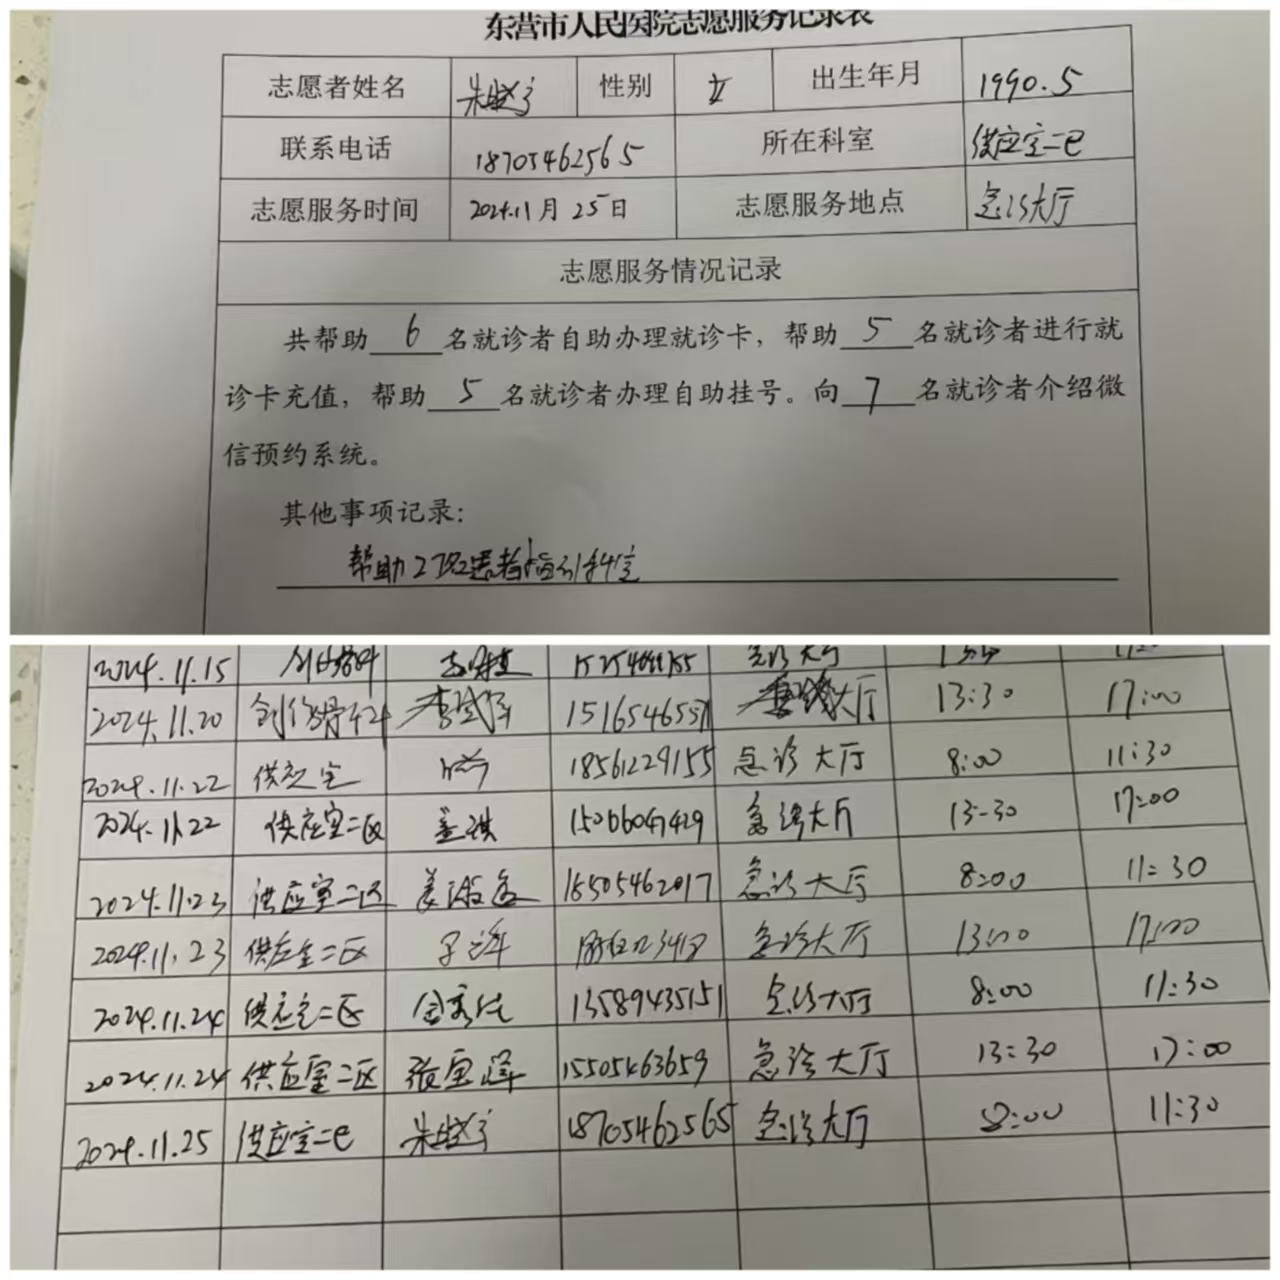 东营市人民医院志愿服务记录表
志愿者姓名 朱 性别 女 出生年月 1990.5
联系电话 18705462565 所在科室 供应室二区
志愿服务时间 2024.11月25日 志愿服务地点 急诊大厅
志愿服务情况记录
共帮助 6 名就诊者自助办理就诊卡，帮助 5 名就诊者进行就
诊卡充值，帮助 5 名就诊者办理自助挂号。向 7 名就诊者介绍微
信预约系统。
其他事项记录：
帮助2 患者指引
2024.11.15 急诊大厅
2024.11.20 创伤骨科 151654655 大厅 13:30 17:00
2024.11.22 供应室 18561229155 急诊大厅 8:00 11:30
2024.11.22 供应室二区 姜琪 15066047429 急诊大厅 13:30 17:00
2024.11.23 供应室二区 姜 15505462017 急诊大厅 8:00 11:30
2024.11.23 供应室二区 急诊大厅 13:00 17:00
2024.11.24 供应室二区 13589435151 急诊大厅 8:00 11:30
2024.11.24 供应室二区 张 15505463659 急诊大厅 13:30 17:00
2024.11.25 供应室二区 朱 18705462565 急诊大厅 8:00 11:30